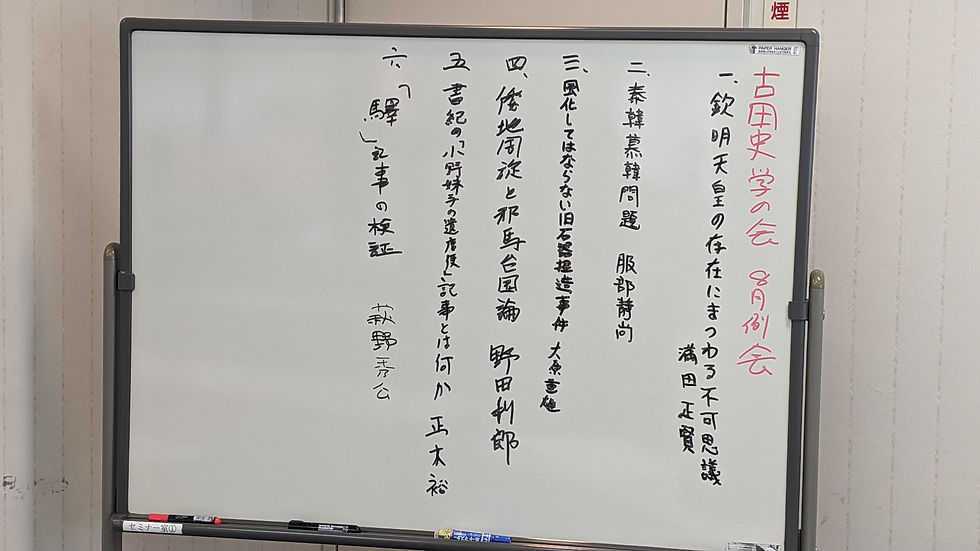 古田史学の会 8月例会
一、欽明天皇の存在にまつわる不可思議
満田正賢
二、秦韓慕韓問題 服部静尚
三、風化してはならない旧石器捏造事件 大原重雄
四、倭地周旋と邪馬台国論 野田利郎
五 書紀の「小野妹子の遣唐使」記事とは何か 正木裕
六、「驛」記事の検証 萩野秀公
煙
PAPER HANGER
セミナー室①